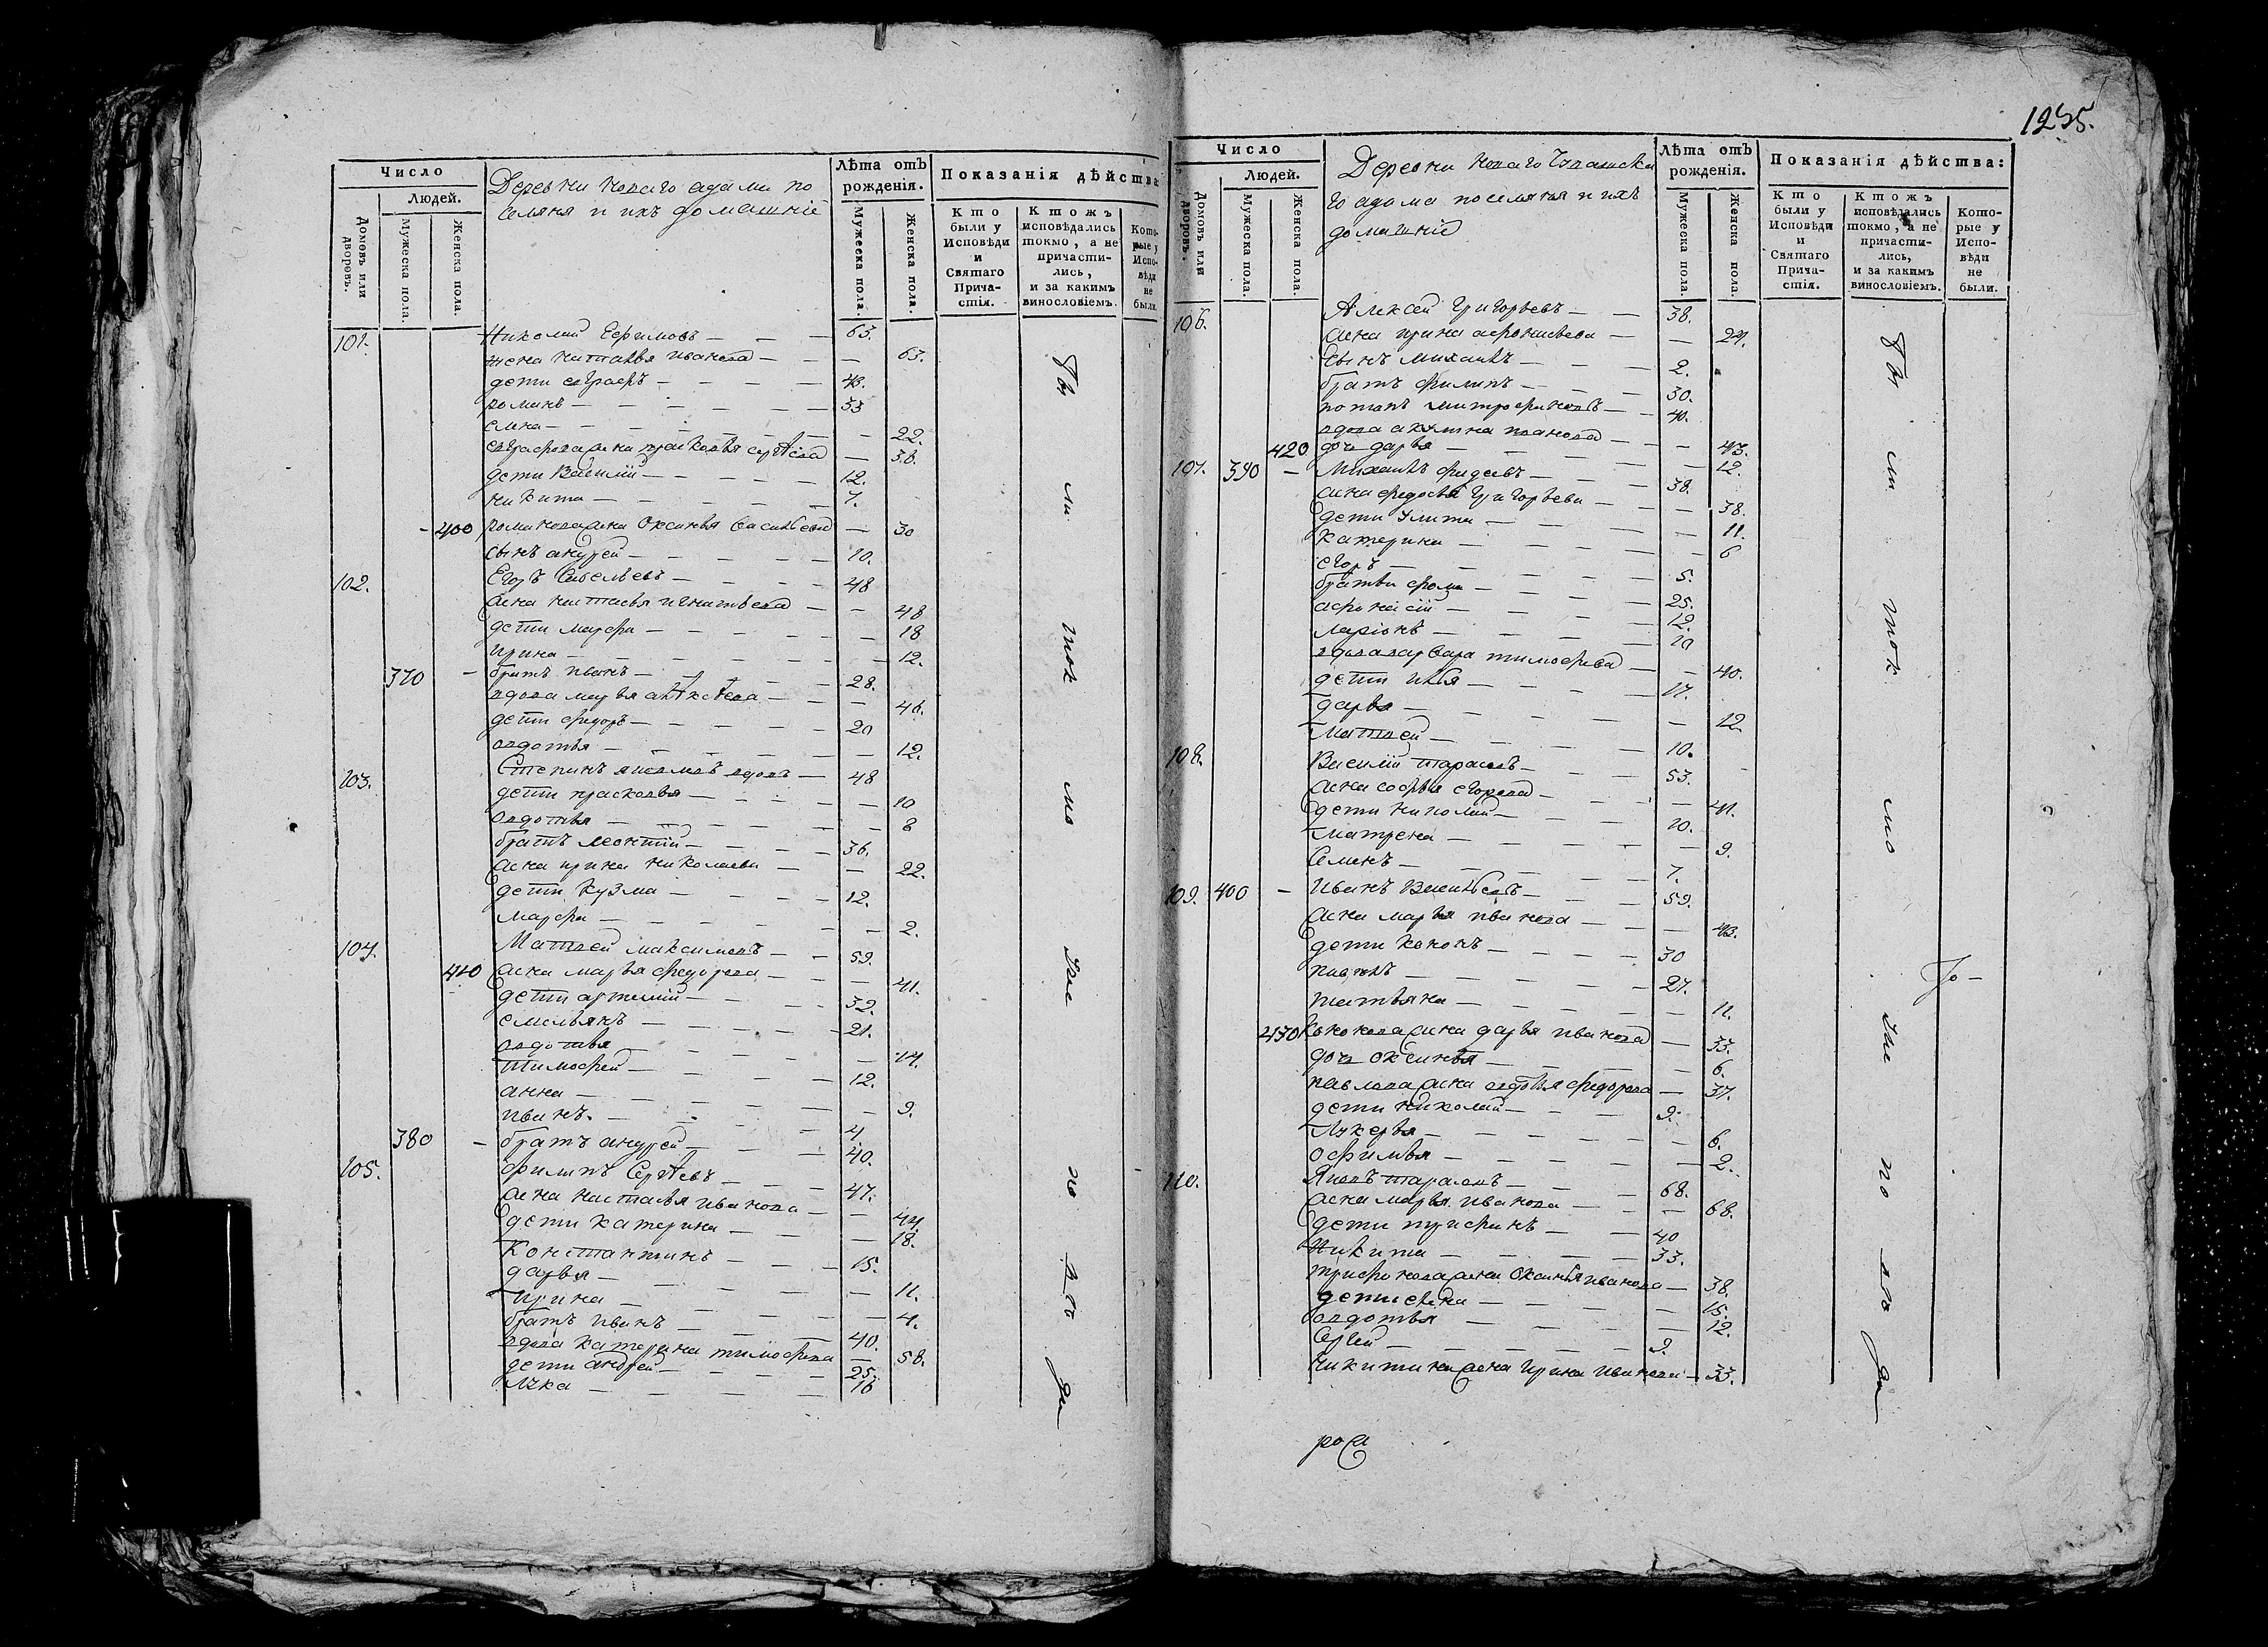 1235.
Число
Людей.
Домовъ или дворовъ.
Мужеска пола.
Женска пола.
Деревни новаго адама по
селяня и ихъ домашніе
Лѣта отъ рожденія.
Мужеска пола.
Женска пола.
Показанія дѣйства
Кто были у Исповѣди и Святаго Причастія.
Ктожъ исповѣдались токмо, а не причастились, и за какимъ винословіемъ.
Которые у Исповѣди не были.
101. Николай Ефимовъ — 63.
жена настасья иванова — 63.
дети евграфъ — 43.
романъ — 33
— 22.
евграфова жена прасковья сергѣева — 38.
дети Василій — 12.
никита — 7.
400 романова жена Оксинья васильева — 30
сынъ андрей — 10.
102. Егоръ Савельевъ — 48
жена настасья игнатьева — 48
дети марфа — 18
ирина — 12.
370 братъ иванъ — 28.
вдова марья алѣксѣева — 46.
дети федоръ — 20
овдотья — 12.
103. Степанъ яковлевъ вдовъ — 48
дети прасковья — 10
овдотья — 8
братъ леонтій — 36.
жена ирина николаева — 22.
дети Кузма — 12.
марфа — 2.
104. Матвей максимовъ — 59.
410 жена марья федорова — 41.
дети артемій — 32.
емельянъ — 21.
овдотья — 14.
Тимофей — 12.
анна — 9.
иванъ. — 4.
380 братъ андрей — 40.
105. филипъ Сергѣевъ — 47.
жена настасья иванова — 44.
дети катерина — 18.
Константинъ — 15.
дарья — 11.
ирина — 4.
братъ иванъ — 40.
вдова катерина тимофеева — 58.
дети андрей — 25.
лука — 16
бы ли ток мо
Число
Людей.
Домовъ или дворовъ.
Мужеска пола.
Женска пола.
Деревни новаго Чувашска
го адама поселяня и ихъ
домашніе
Лѣта отъ рожденія.
Мужеска пола.
Женска пола.
Показанія дѣйства:
Кто были у Исповѣди и Святаго Причастія.
Ктожъ исповѣдались токмо, а не причастились, и за какимъ винословіемъ.
Которые у Исповѣди не были.
106. Алексей Григорьевъ — 38.
жена ирина афонасьева — 24.
сынъ михаилъ — 2.
братъ филипъ — 30.
потапъ митрофановъ — 40.
вдова акулина иванова — 43.
420 дочь дарья — 12.
107. 390 Михаилъ фадеевъ — 38.
жена федосья Григорьева — 38.
дети Улита — 11.
катерина — 6
егоръ — 5.
братьи фома — 25.
афонасій — 12.
ларіонъ — 10
вдова варвара тимофеева — 40.
дети илья — 17.
дарья — 12
Матвей — 10.
108. Василій тарасовъ — 53.
жена софья егорова — 41.
дети николай — 10.
матрена — 9.
Семенъ — 7.
109. 400 Иванъ Васильевъ — 59.
жена марья иванова — 43.
дети кононъ — 30
павелъ — 27.
татьяна — 11.
430 Кононова жена дарья иванова — 33.
дочь оксинья — 6.
павлова жена овдотья федорова — 37.
дети николай — 9.
Лукерья — 6.
офимья — 2.
110. Яковъ тарасовъ — 68.
жена марья иванова — 68.
дети трифанъ — 40
Никита — 33.
трифонова жена Оксинья иванова — 38.
дети елена — 15.
овдотья — 12.
Сергей — 9.
Никитина жена Ирина иванова — 33.
бы ли ток мо